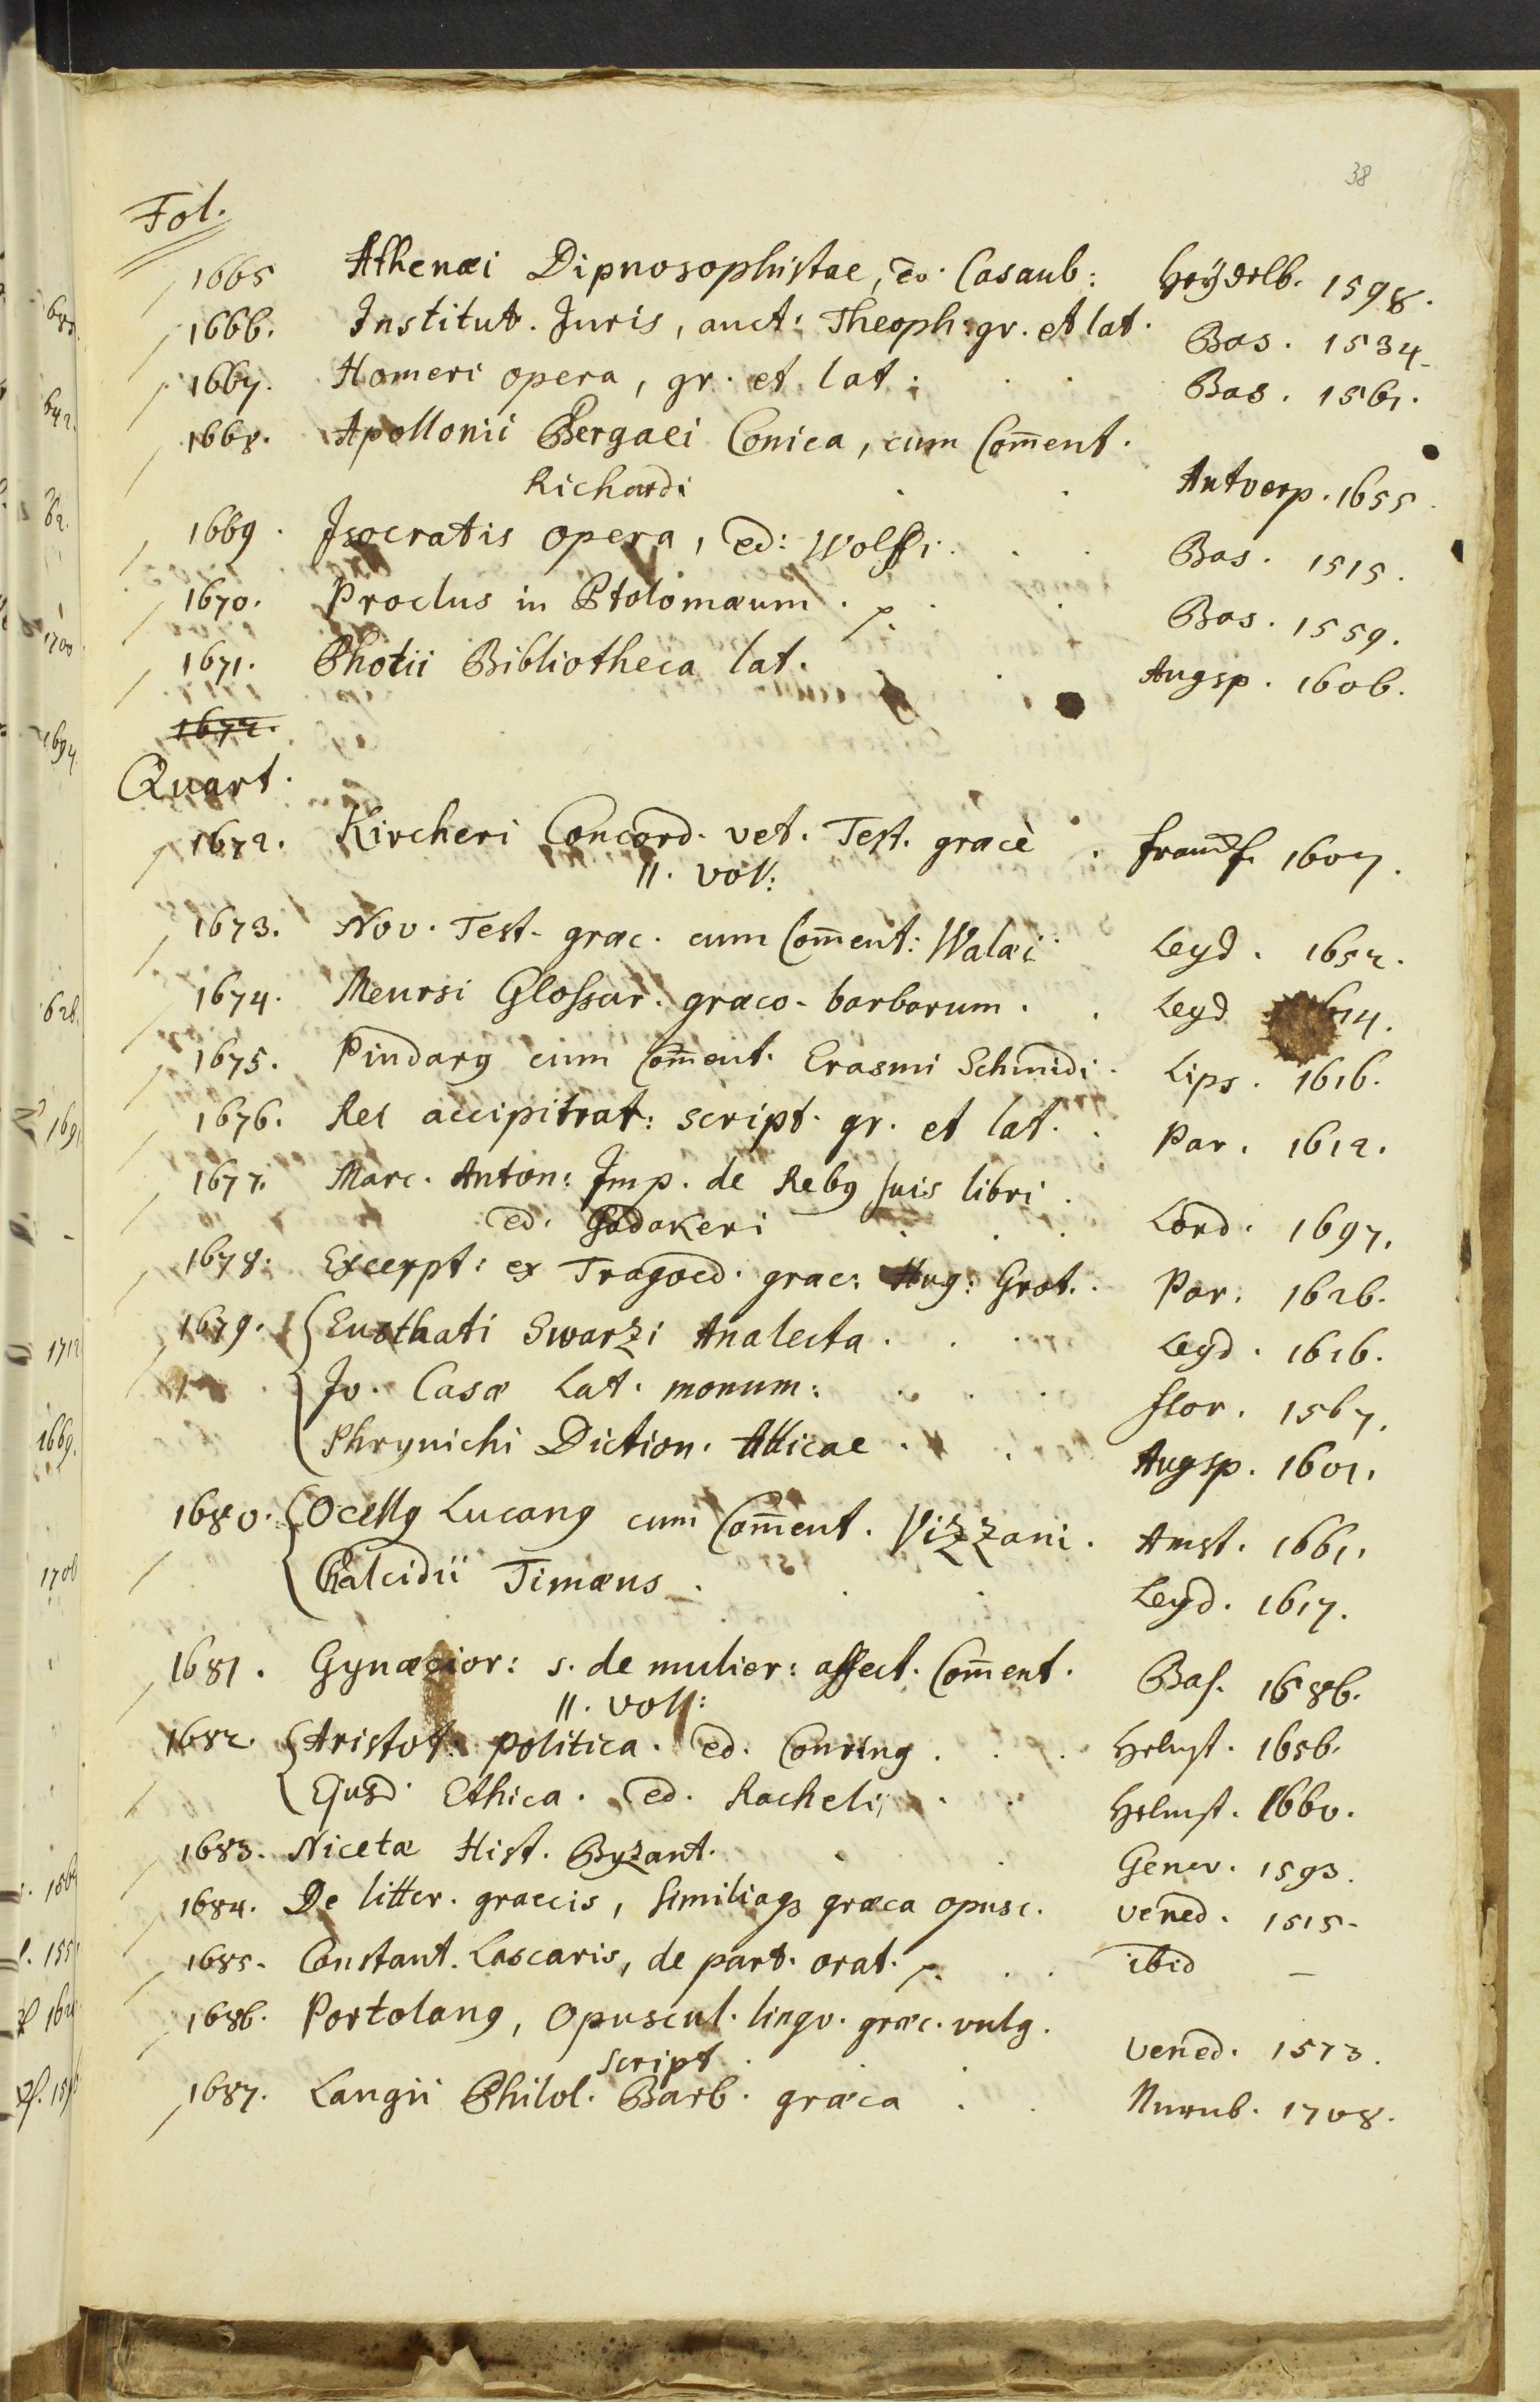 38
Fol.
1665 Athenæi Dipnosophistae, ed. Casaub: Heÿdelb. 1598.
1666. Institut. Juris, auct: Theoph: gr. et lat. Bas. 1534.
1667. Homeri opera, gr. et lat. Bas. 1561.
1668. Apollonii Pergaei Conica, cum Com̄ent.
Richardi Antverp. 1655.
1669. Isocratis opera, ed: Wolfi. Bas. 1515.
1670. Proclus in Ptolomæum. Bas. 1559.
1671. Photii Bibliotheca lat. Augsp. 1606.
1672.
Quart.
1672. Kircheri Concord. vet. Test. græcè. Francf. 1607.
II. voll:
1673. Nov. Test. græc. cum Com̄ent: Walæi Leyd. 1652.
1674. Meursi Glossar. græco-barbarum. Leyd 1614.
1675. Pindarꝰ cum Com̄ent. Erasmi Schmidi. Lips. 1616.
1676. Rei accipitrar: script. gr. et lat. Par. 1612.
1677. Marc. Anton: Imp. de Rebꝰ suis libri.
ed. Gadakeri Lond. 1697.
1678. Excerpt: ex Tragoed. græc: Hug: Grot. Par. 1626.
1679. Eusthati Swarzi Analecta. Leyd. 1616.
Jo. Casæ Lat. monum: Flor. 1567.
Phrynichi Diction. Atticae. Augsp. 1601.
1680. Ocellꝰ Lucanꝰ cum Com̄ent. Vizzani. Amst. 1661.
Chalcidii Timæus. Leyd. 1617.
1681. Gynæcior: s. de mulier: affect. Com̄ent. Bas. 1586.
II. voll:
1682. Aristot: politica. ed. Conring. Helmst. 1656.
Ejusd. Ethica. ed. Rachelii. Helmst. 1660.
1683. Nicetæ Hist. Byzant. Genev. 1593.
1684. De litter. graecis, similiaqꝫ græca opusc. Vened. 1515.
1685. Constant. Lascaris, de part. orat. ibid —
1686. Portolanꝰ, Opuscul. lingv. græc. vulg. Vened. 1573.
script.
1687. Langii Philol. Barb. græca Nurnb. 1708.